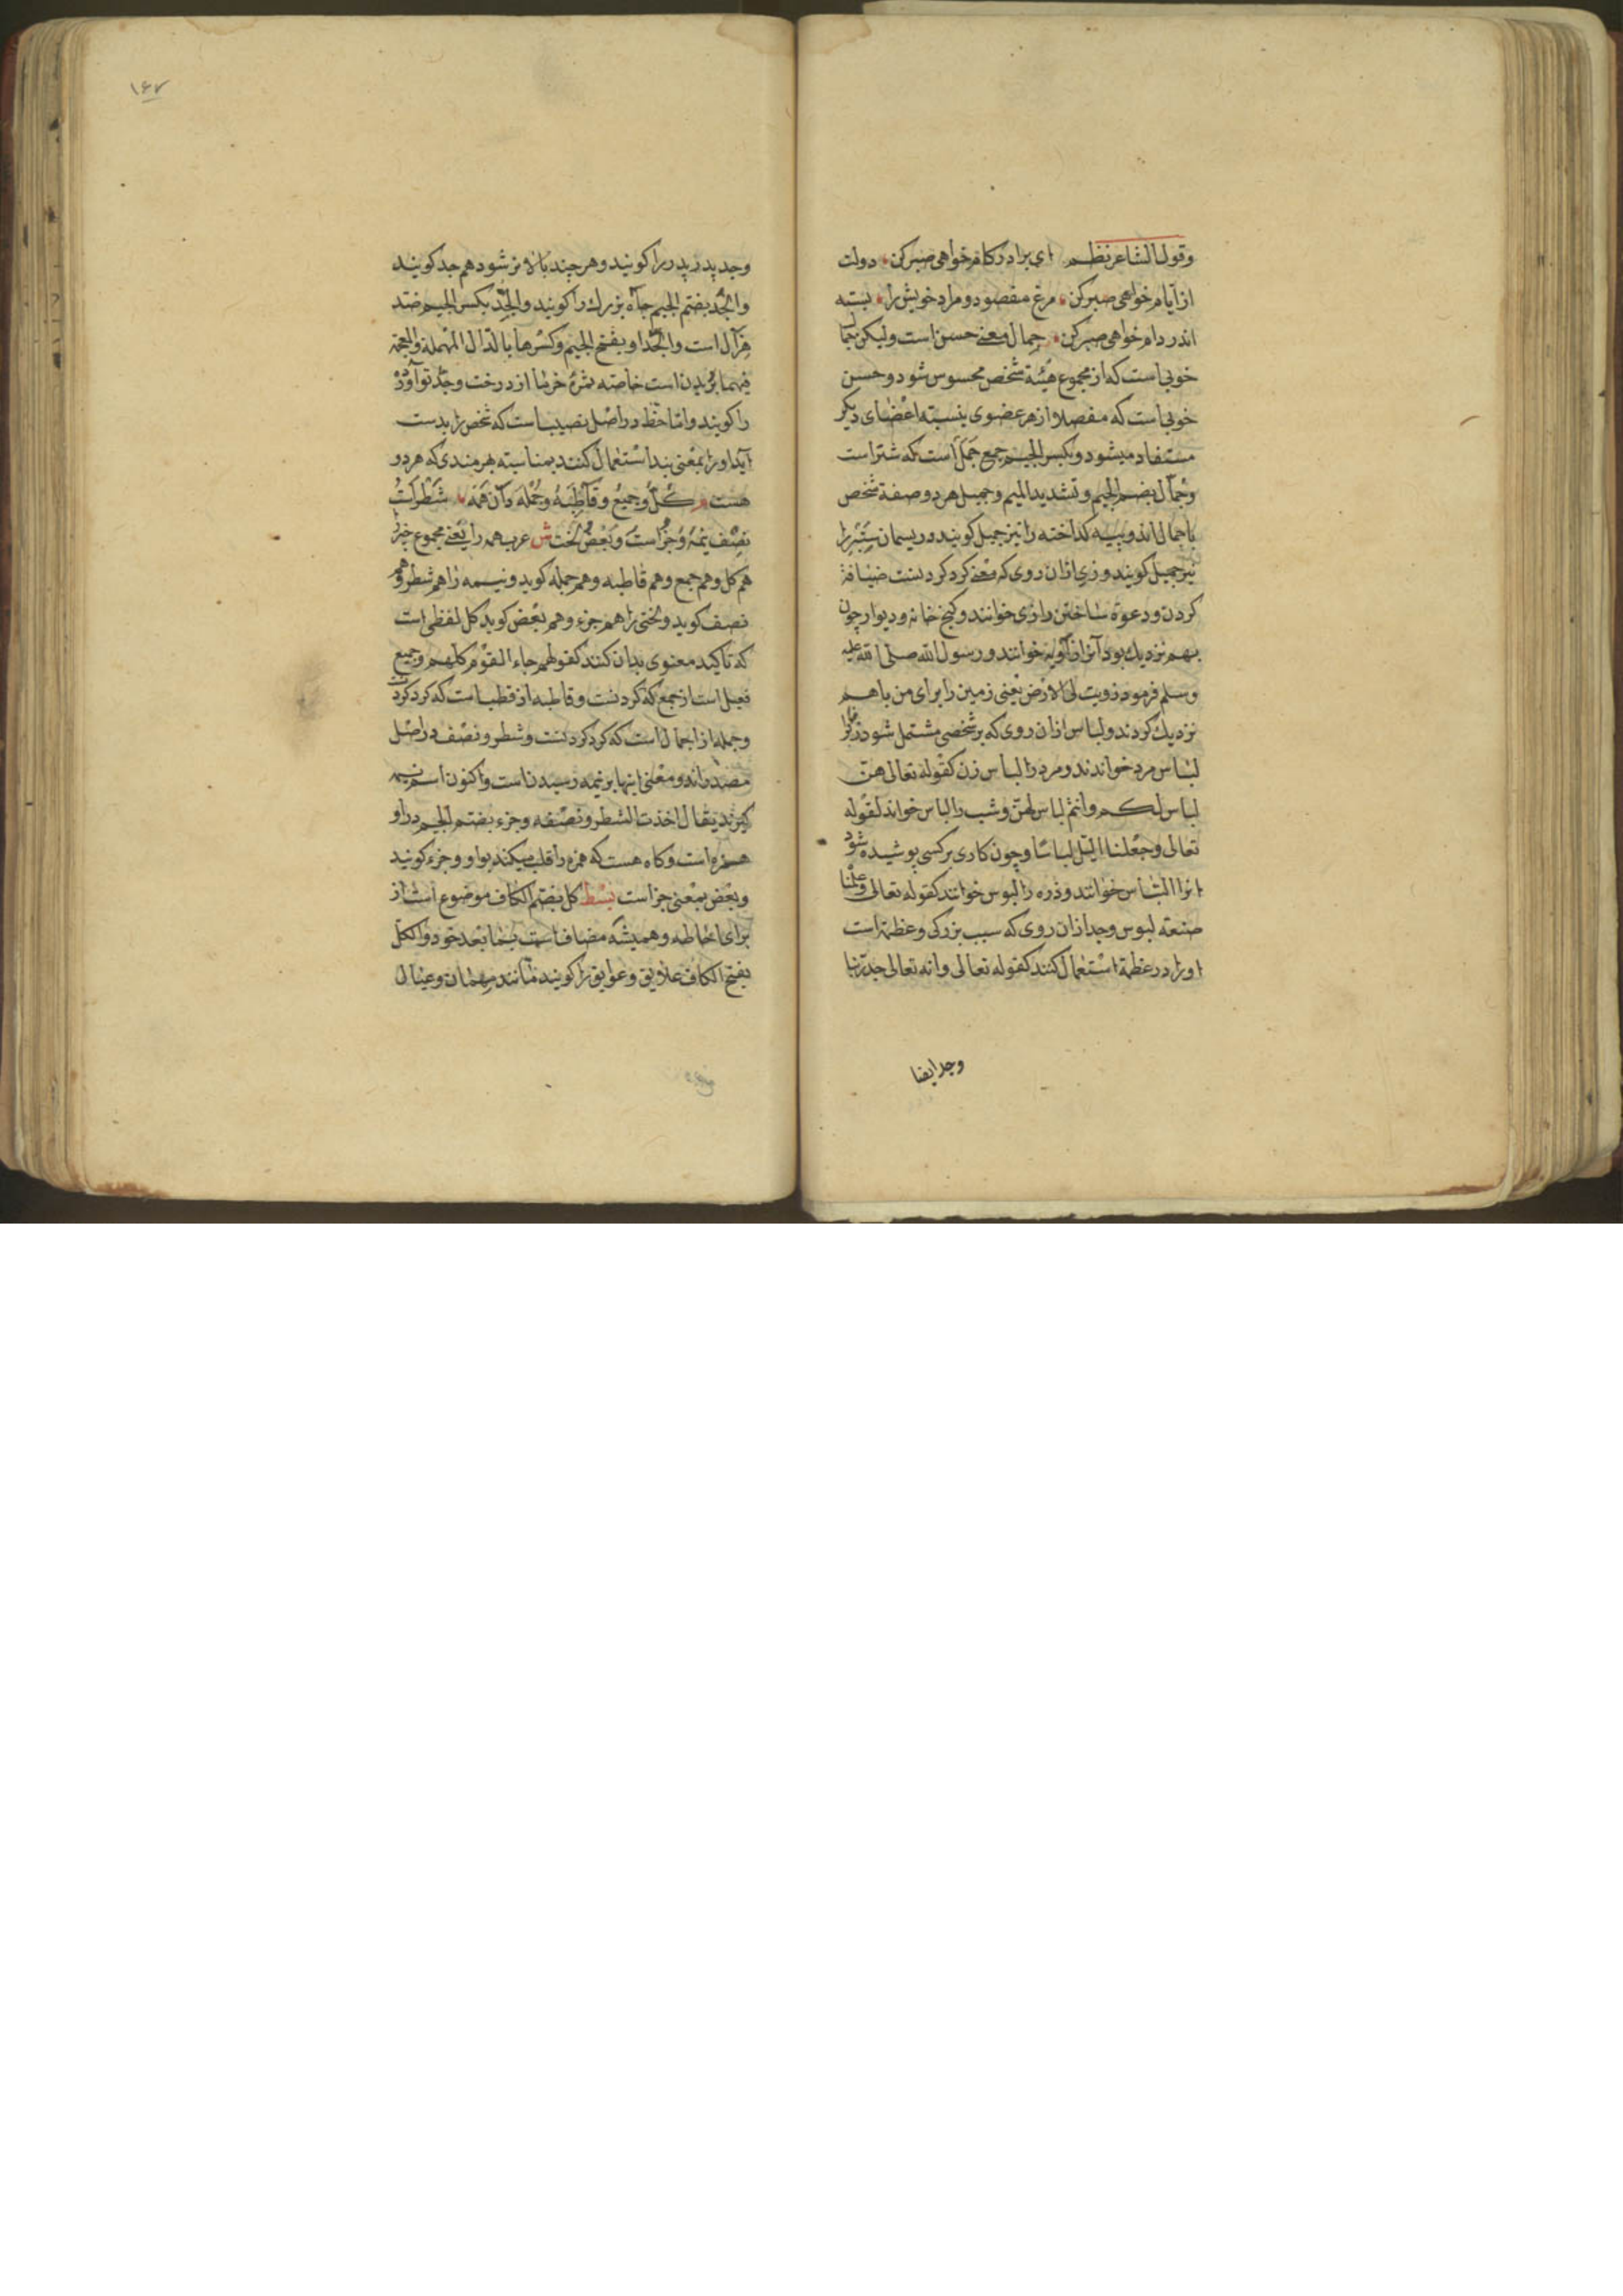 وقول الشاعر نظم ای برادر کام خواهی صبر کن دولت
از ایام خواهی صبر کن مرغ مقصود و مراد خویش را بسته
اندر دام خواهی صبر کن جمال بمعنے حسن است ولیکن جمال
خوبی است که از مجموع هیئة شخص محسوس شود و حسن
خوبی است که مفصلا از هر عضوی بنسبته اعضای دیکر
مستفاد میشود و بکسر الجیم جمع جمل است که شتر است
وجمال بضم الجیم و تشدید المیم وجمیل هر دو صفة شخص
با جمال اند و پیه کداخته را نیز جمیل کویند و ریسمان ستبر را
نیز جمیل کویند و زی ازان روی که معنے کرد کردنست ضیافة
کردن و دعوة ساختن را زی خوانند و کنج خانه و دیوار چون
بهم نزدیک بود آنرا زاویه خوانند و رسول الله صلی الله علیه
وسلم فرمود زویت لی الارض یعنی زمین را برای من باهم
نزدیک کردند و لباس ازان روی که بر شخصی مشتمل شود زنرا
لباس مرد خواندند و مرد را لباس زن کقوله تعالی هن
لباس لکم وانتم لباس لهن و شب را لباس خواند لقوله
تعالی وجعلنا اللیل لباسا و چون کاری بر کسی پوشیده شود
انرا التباس خوانند و ذره را لبوس خوانند کقوله تعالی وعلمنا
صنعة لبوس وجد ازان روی که سبب بزرکی و عظمة است
اورا در عظمة استعمال کنند کقوله تعالی وانه تعالی جد ربنا
وجد ایضا
۱۶۷
وجد پدر پدر را کویند و هر چند بالاتر شود هم جد کویند
والجد بضم الجیم چاه بزرک را کویند والجد بکسر الجیم ضد
هزل است والجداد بفتح الجیم وکسرها بالدال المهملة والمعجمة
فیهما بریدن است خاصه ثمرۀ خرما از درخت وجد توآورد
را کویند و اما حظ در اصل نصیب است که شخص را بدست
آید اورا بمعنی پند استعمال کنند بمناسبته بهرمندی که هر دو
هست کل وجمیع وقاطبه وجمله دان همه شطرات
نصف نیمۀ وجزاست وبعض لخت ش عرب همه را یعنی مجموع چیز را
هم کل وهم جمع وهم قاطبه وهم جمله کوید و نیمه را هم شطر وهم
نصف کوید و لختی را هم جزء وهم بعض کوید کل لفظی است
که تاکید معنوی بدان کنند کقولهم جاء القوم کلهم وجمیع
فعیل است از جمع که کردنست وقاطبه از قطب است که کرد کردنست
وجمله از اجمال است که کرد کردنست وشطر ونصف در اصل
مصدراند و معنی اینها بر نیمه رسیدن است واکنون اسم نیمه
کیرند یقال اخذت الشطر ونصفه وجزء بضم الجیم در او
همزه است و کاه هست که همزه را قلب میکند بواو وجزو کویند
وبعض بمعنی جز است بسط کل بضم الکاف موضوع است از
برای احاطه و همیشه مضاف است بما بعد خود والکل
بفتح الکاف علایق و عوایق را کویند مانند مهمان و عیال